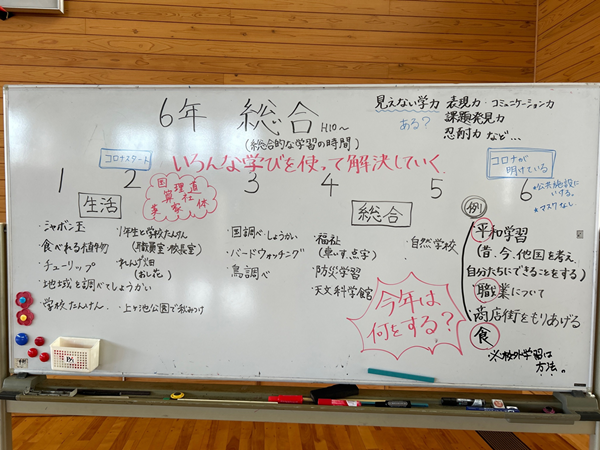 6年 総合 H10～
(総合的な学習の時間)
見えない学力 表現力・コミュニケーション力
ある? 課題発見力
忍耐力 など…
コロナスタート
いろんな学びを使って解決していく
コロナが
明けている
1 2 3 4 5 6
*公共施設に
いける。
*マスクなし
国 理 道
算 社
英 家 体
生活
総合
例
・シャボン玉
・食べれる植物
・チューリップ
・地域を調べてしょうかい
・学校たんけん
・1年生と学校たんけん
(職員室・校長室)
・れんげ畑
(おし花)
・上ヶ池公園で秋みつけ
・国調べ・しょうかい
・バードウォッチング
・鳥調べ
・福祉
(車いす、点字)
・防災学習
・天文科学館
・自然学校
・平和学習
(昔、今、他国を考え、
自分たちにできることをする)
・職業について
・商店街をもりあげる
・食
※校外学習は
方法。
今年は
何をする?